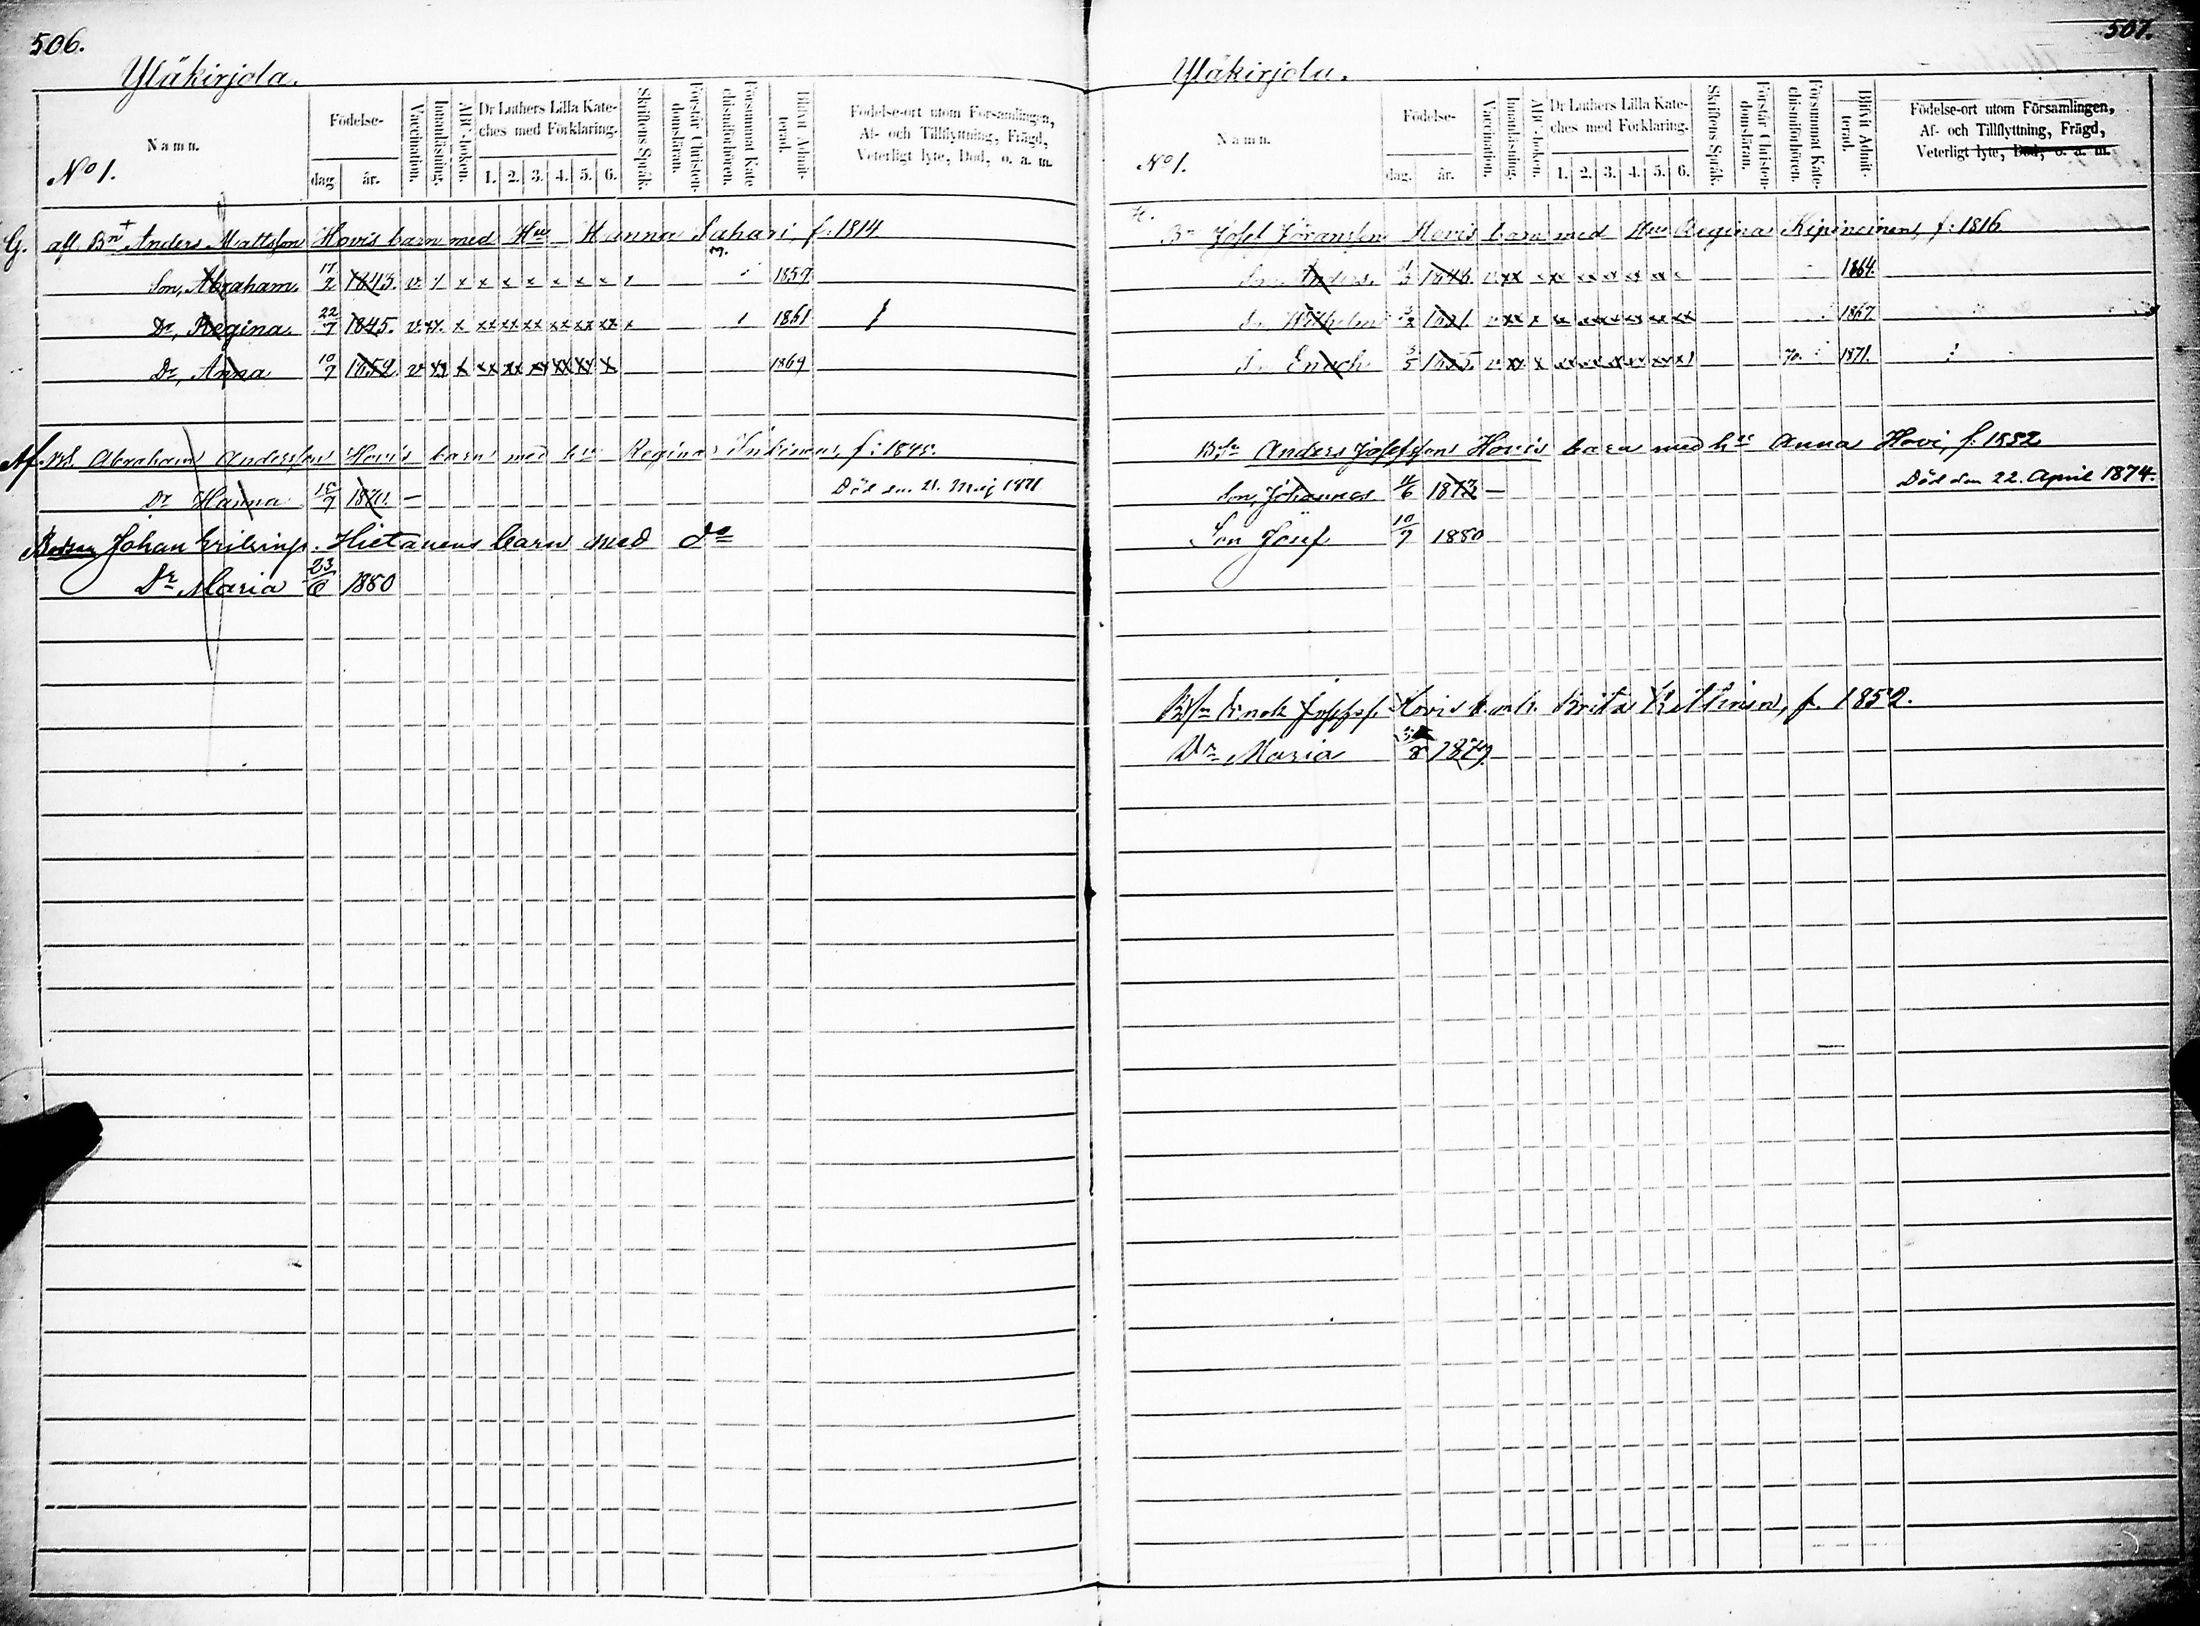 506.
Yläkirjola.
Namn.
No 1.
Födelse-
dag
år.
Vaccination.
Innanläsning.
ABC-boken.
Dr Luthers Lilla Kate-
ches med Förklaring.
1. 2. 3. 4. 5. 6.
Skriftens Språk.
Förstår Christen-
domsläran.
Försummat Kate-
chismiförhören.
Blifvit Admit-
terad.
Födelse-ort utom Församlingen,
Af- och Tillflyttning, Frägd,
Veterligt lyte, Död, o. a. m.
G. afl. Bn Anders Mattsson Hovis barn med Hu Hanna Sahari, f. 1814
Son, Abraham. 17/2 1843. v x x x x x x x x 1859
Dr, Regina 22/7 1845. v xx x xx xx xx xx xx xx x 1861
Dr, Anna 10/9 1852 v xx x xx xx xx xx xx x 1869
Abraham Andersson Hovis barn med hu Regina f: 1845.
Dr Hanna 15/9 1870. — Död den 21. Maj 1871
Johan Hietanens barn med do
Dr Maria 23/6 1880
507.
Yläkirjola.
Namn.
No 1.
Födelse-
dag.
år.
Vaccination.
Innanläsning.
ABC-boken.
Dr Luthers Lilla Kate-
ches med Förklaring.
1. 2. 3. 4. 5. 6.
Skriftens Språk.
Förstår Christen-
domsläran.
Försummat Kate-
chismiförhören.
Blifvit Admit-
terad.
Födelse-ort utom Församlingen,
Af- och Tillflyttning, Frägd,
Veterligt lyte, Död, o. a. m.
Bn Josef Göransson Hovis barn med Hu Regina Repineinen, f: 1816
Son Anders. 1846. 1864.
Wilhelm 1867.
Enoch 3/5 1855. 70. 1871.
Anders Josefsson Hovis barn med hu Anna Hovi, f. 1852
Son, Johannes 11/6 1873 — Död den 22. April 1874.
Son Josef 10/9 1880
Enok Josefss. Hovis b. m. h. Brita Kettinen, f. 1852.
Dr Maria 1879.